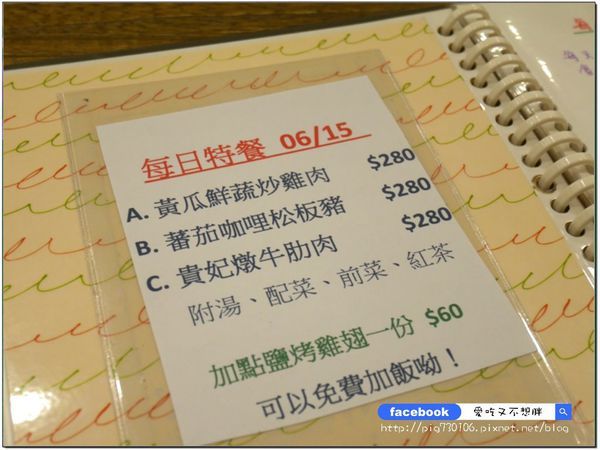 每日特餐 06/15
A. 黃瓜鮮蔬炒雞肉 $280
B. 蕃茄咖哩松板豬 $280
C. 貴妃燉牛肋肉 $280
附湯、配菜、前菜、紅茶
加點鹽烤雞翅一份 $60
可以免費加飯呦！
facebook 愛吃又不想胖
http://pig730106.pixnet.net/blog